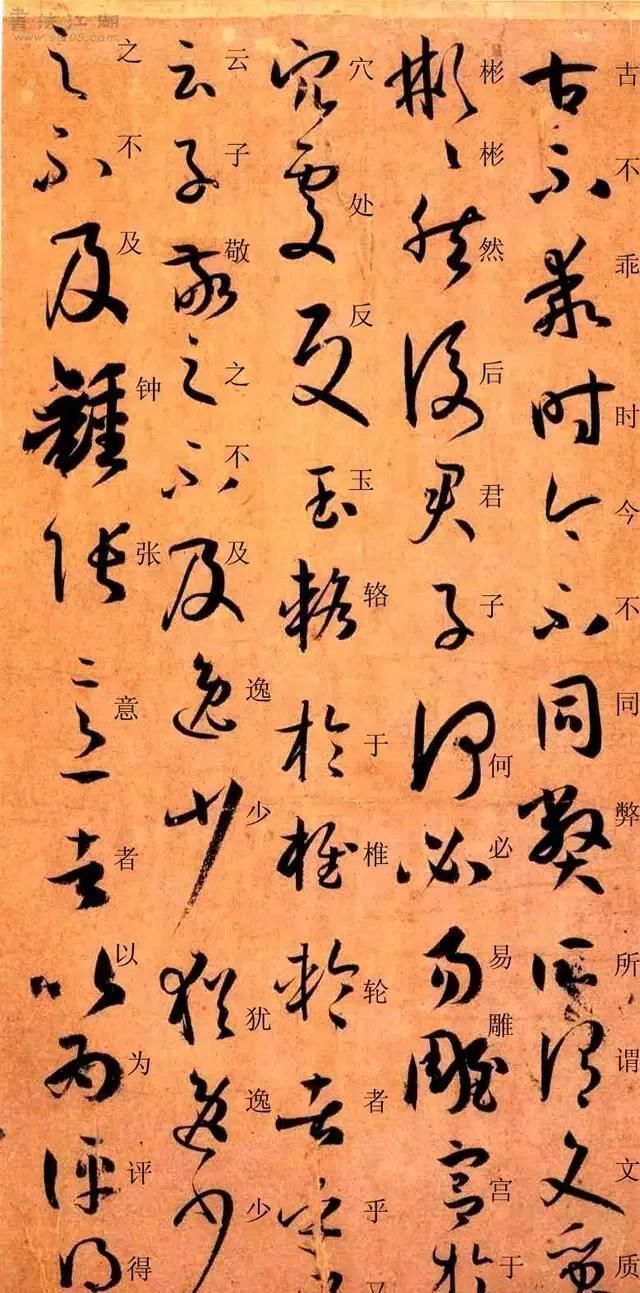 書法江湖
古不乖时今不同弊所谓文质
彬彬然后君子何必易雕宫于
穴处反玉辂于椎轮者乎又
云子敬之不及逸少犹逸少
之不及钟张意者以为评得